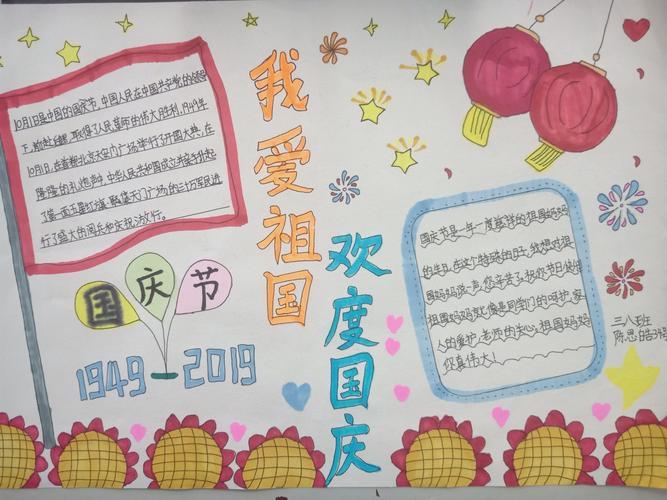 10月1日是中国的国庆节,中国人民在中国共产党的领导
下,前赴后继,取得了人民革命的伟大胜利,1949年
10月1日,在首都北京天安门广场举行了开国大典,在
隆隆的礼炮声中,中华人民共和国成立并亲手升起
了第一面五星红旗,聚集天安门广场的三十万军民进
行了盛大的阅兵和庆祝游行。
我爱祖国
欢度国庆
国庆节
1949 2019
国庆节是一年一度慈祥的祖国妈妈
的生日,在这个特殊的日子,我想对祖
国妈妈说一声,您辛苦了,祝你节日快乐
祖国妈妈就像是同学们的呵护,家
人的爱护,老师的关心,祖国妈妈
你真伟大!
三八班
陈思皓